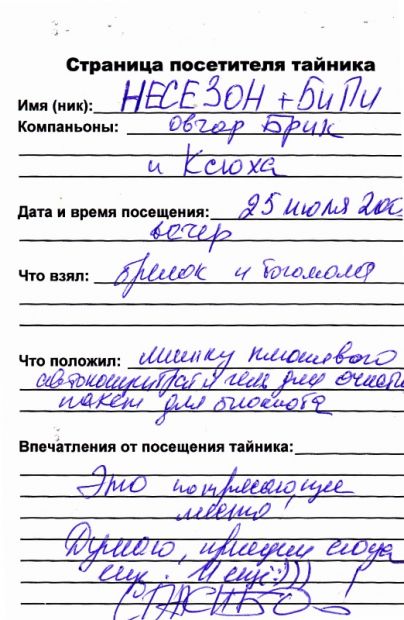 Страница посетителя тайника
Имя (ник): НЕСЕЗОН + БиПи
Компаньоны: Овчар Брик
и Ксюха
Дата и время посещения: 25 июля 200
вечер
Что взял: брелок и богомола
Что положил: мишку плюшевого
для очистки
пакет для блокнота
Впечатления от посещения тайника:
Это потрясающее
место
Думаю, приедем сюда
ещё. И ещё :)))
СПАСИБО !